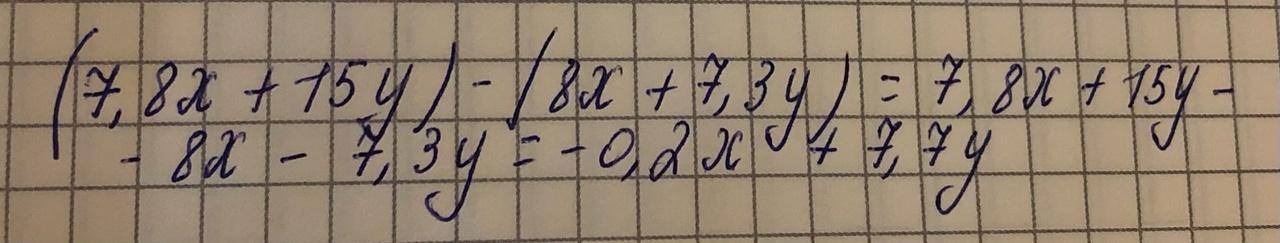 (7,8x + 15y) - (8x + 7,3y) = 7,8x + 15y -
- 8x - 7,3y = -0,2x + 7,7y